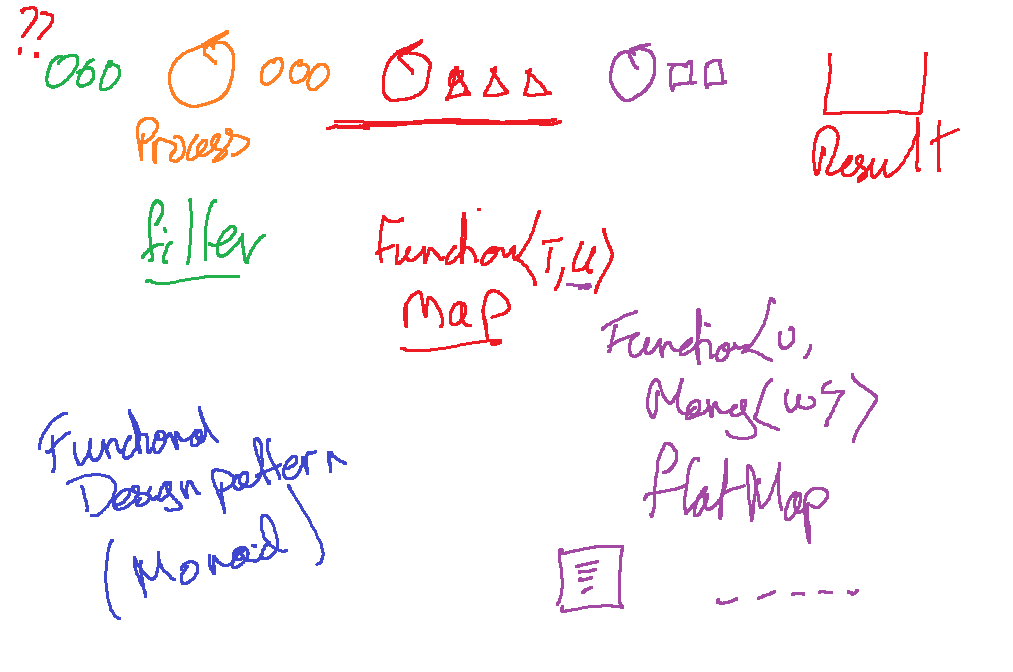 ??
Process
Result
filter
Function<T, U>
Map
Function<U,
Many<W>>
flatMap
Functional
Design pattern
(Monoid)